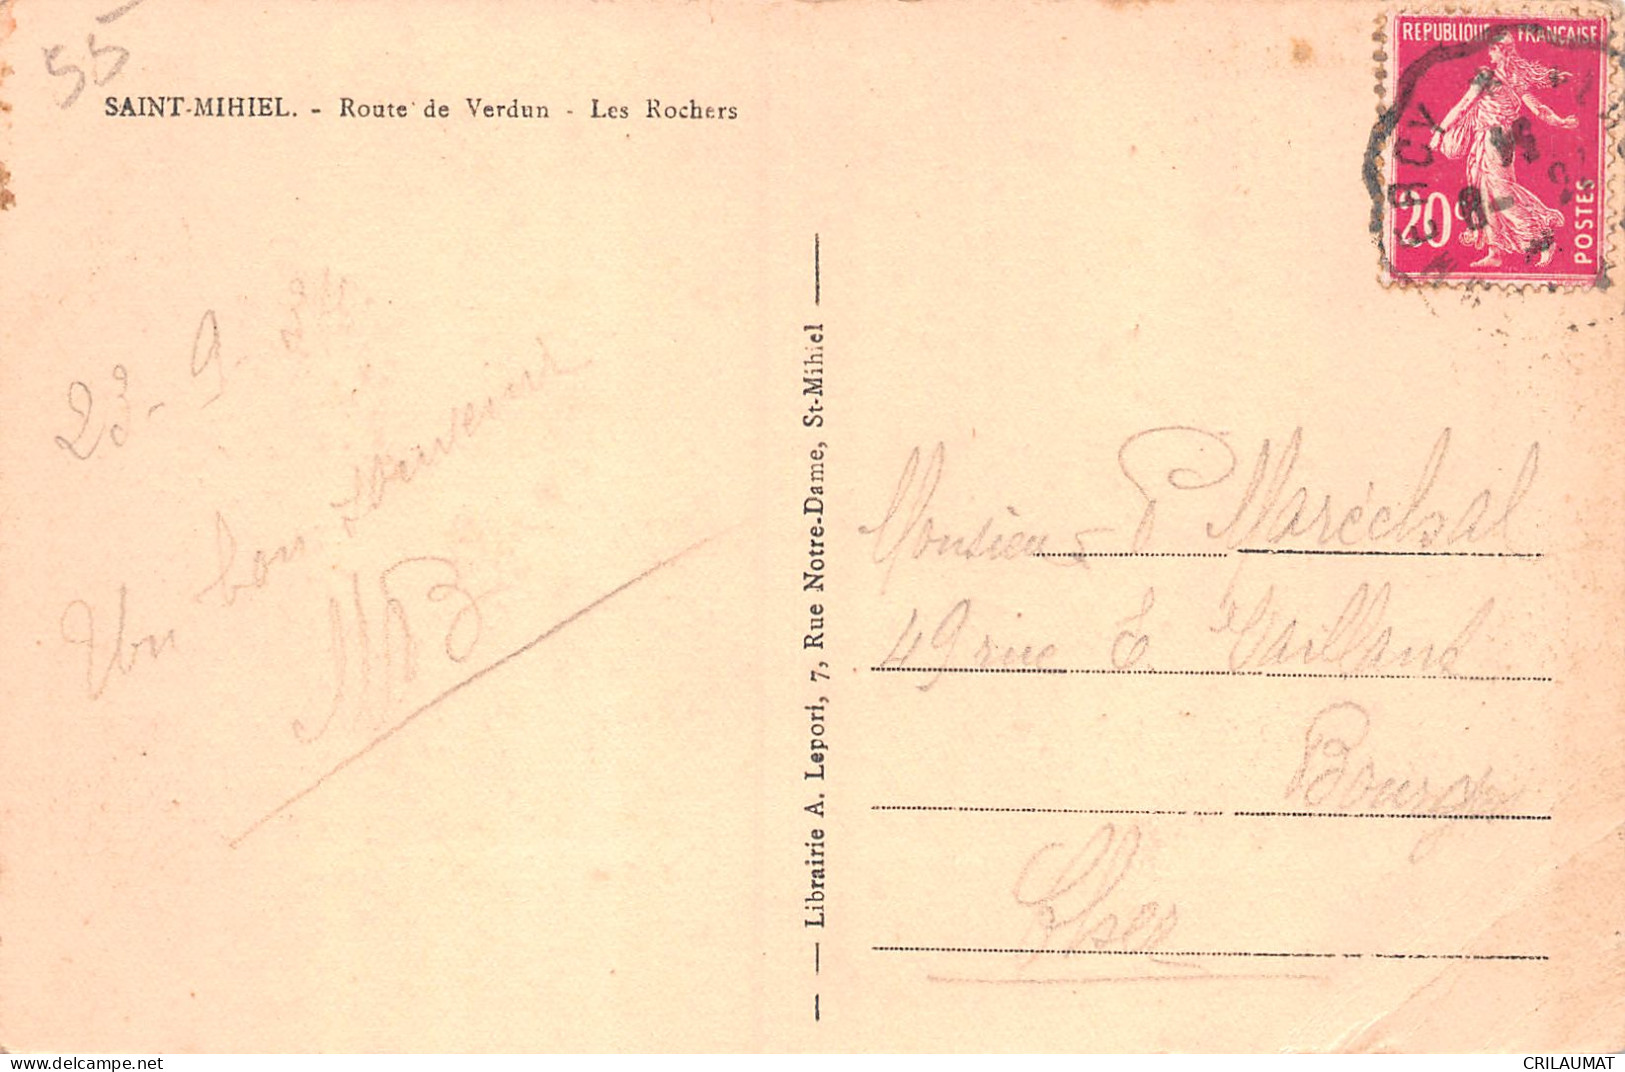 55
SAINT-MIHIEL. - Route de Verdun - Les Rochers
REPUBLIQUE FRANÇAISE
20c
POSTES
23-9-34
Un bon souvenir
MB
Librairie A. Lepori, 7, Rue Notre-Dame, St-Mihiel
Monsieur P Maréchal
49 rue E. Vaillant
Bourges
Cher
www.delcampe.net
CRILAUMAT